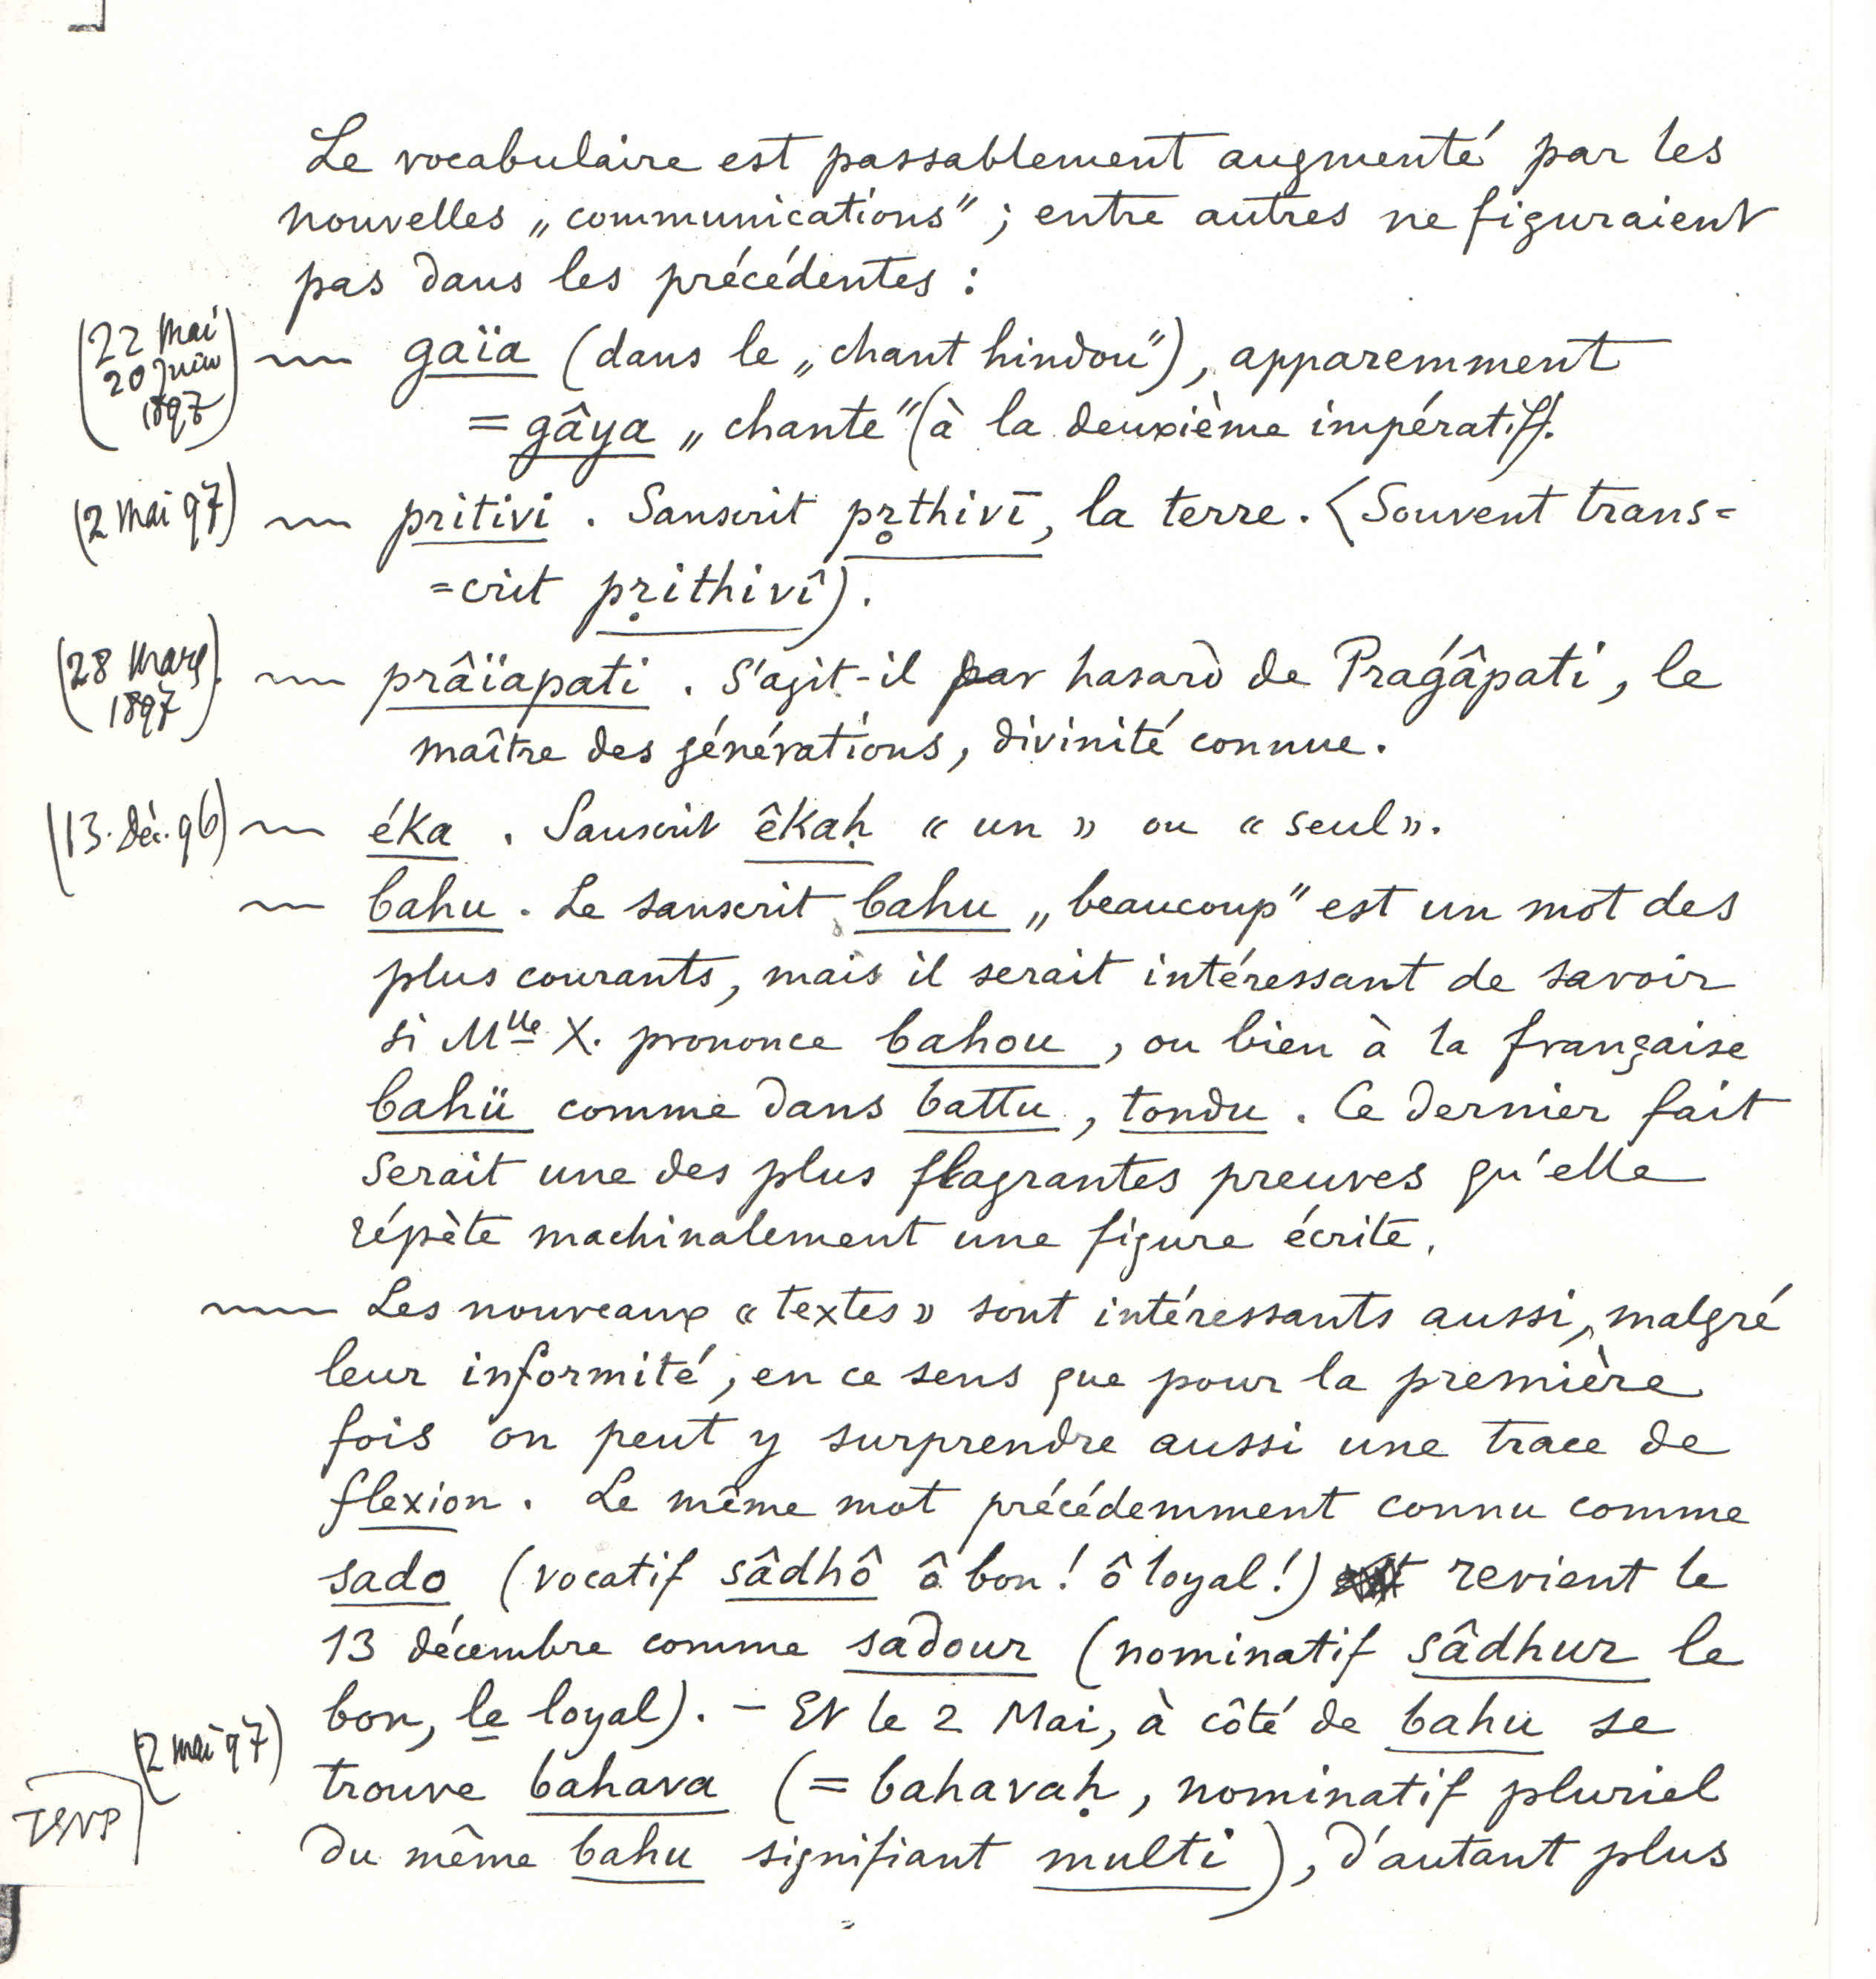 Le vocabulaire est passablement augmenté par les
nouvelles „communications" ; entre autres ne figuraient
pas dans les précédentes :
(22 mai
20 juin
1897)
— gaïa (dans le „chant hindou"), apparemment
= gâya „chante" (à la deuxième impératif).
(2 mai 97)
— pritivi . Sanscrit pr̥thivī, la terre. (Souvent trans=
=crit pr̥ithivî).
(28 mars
1897)
— prâïapati . S'agit-il par hasard de Praǵâpati, le
maître des générations, divinité connue.
(13. déc. 96)
— éka . Sanscrit êkaḥ « un » ou « seul ».
— bahu . Le sanscrit bahu „beaucoup" est un mot des
plus courants, mais il serait intéressant de savoir
si Mlle X. prononce bahou, ou bien à la française
bahü comme dans battu, tondu. Ce dernier fait
serait une des plus flagrantes preuves qu'elle
répète machinalement une figure écrite.
— Les nouveaux « textes » sont intéressants aussi, malgré
leur informité, en ce sens que pour la première
fois on peut y surprendre aussi une trace de
flexion. Le même mot précédemment connu comme
sado (vocatif sâdhô ô bon! ô loyal!) revient le
13 décembre comme sadour (nominatif sâdhur le
bon, le loyal). – Et le 2 Mai, à côté de bahu se
(2 mai 97)
trouve bahava (= bahavaḥ, nominatif pluriel
du même bahu signifiant multi), d'autant plus